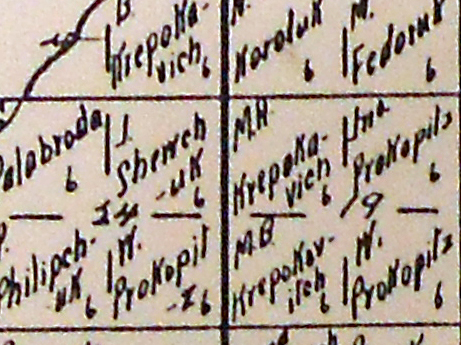 B.
Krepoka-
vich 6
N.
Koroluk
6
M.
Fedoruk
6
Palabroda
6
J.
Sherech
-uk
6
M.H.
Krepoka-
vich 6
Jna
Prokopitz
6
9
Philipch-
uk 6
W.
Prokopit
-z 6
M.B
Krepokov-
itch 6
W.
Prokopitz
6